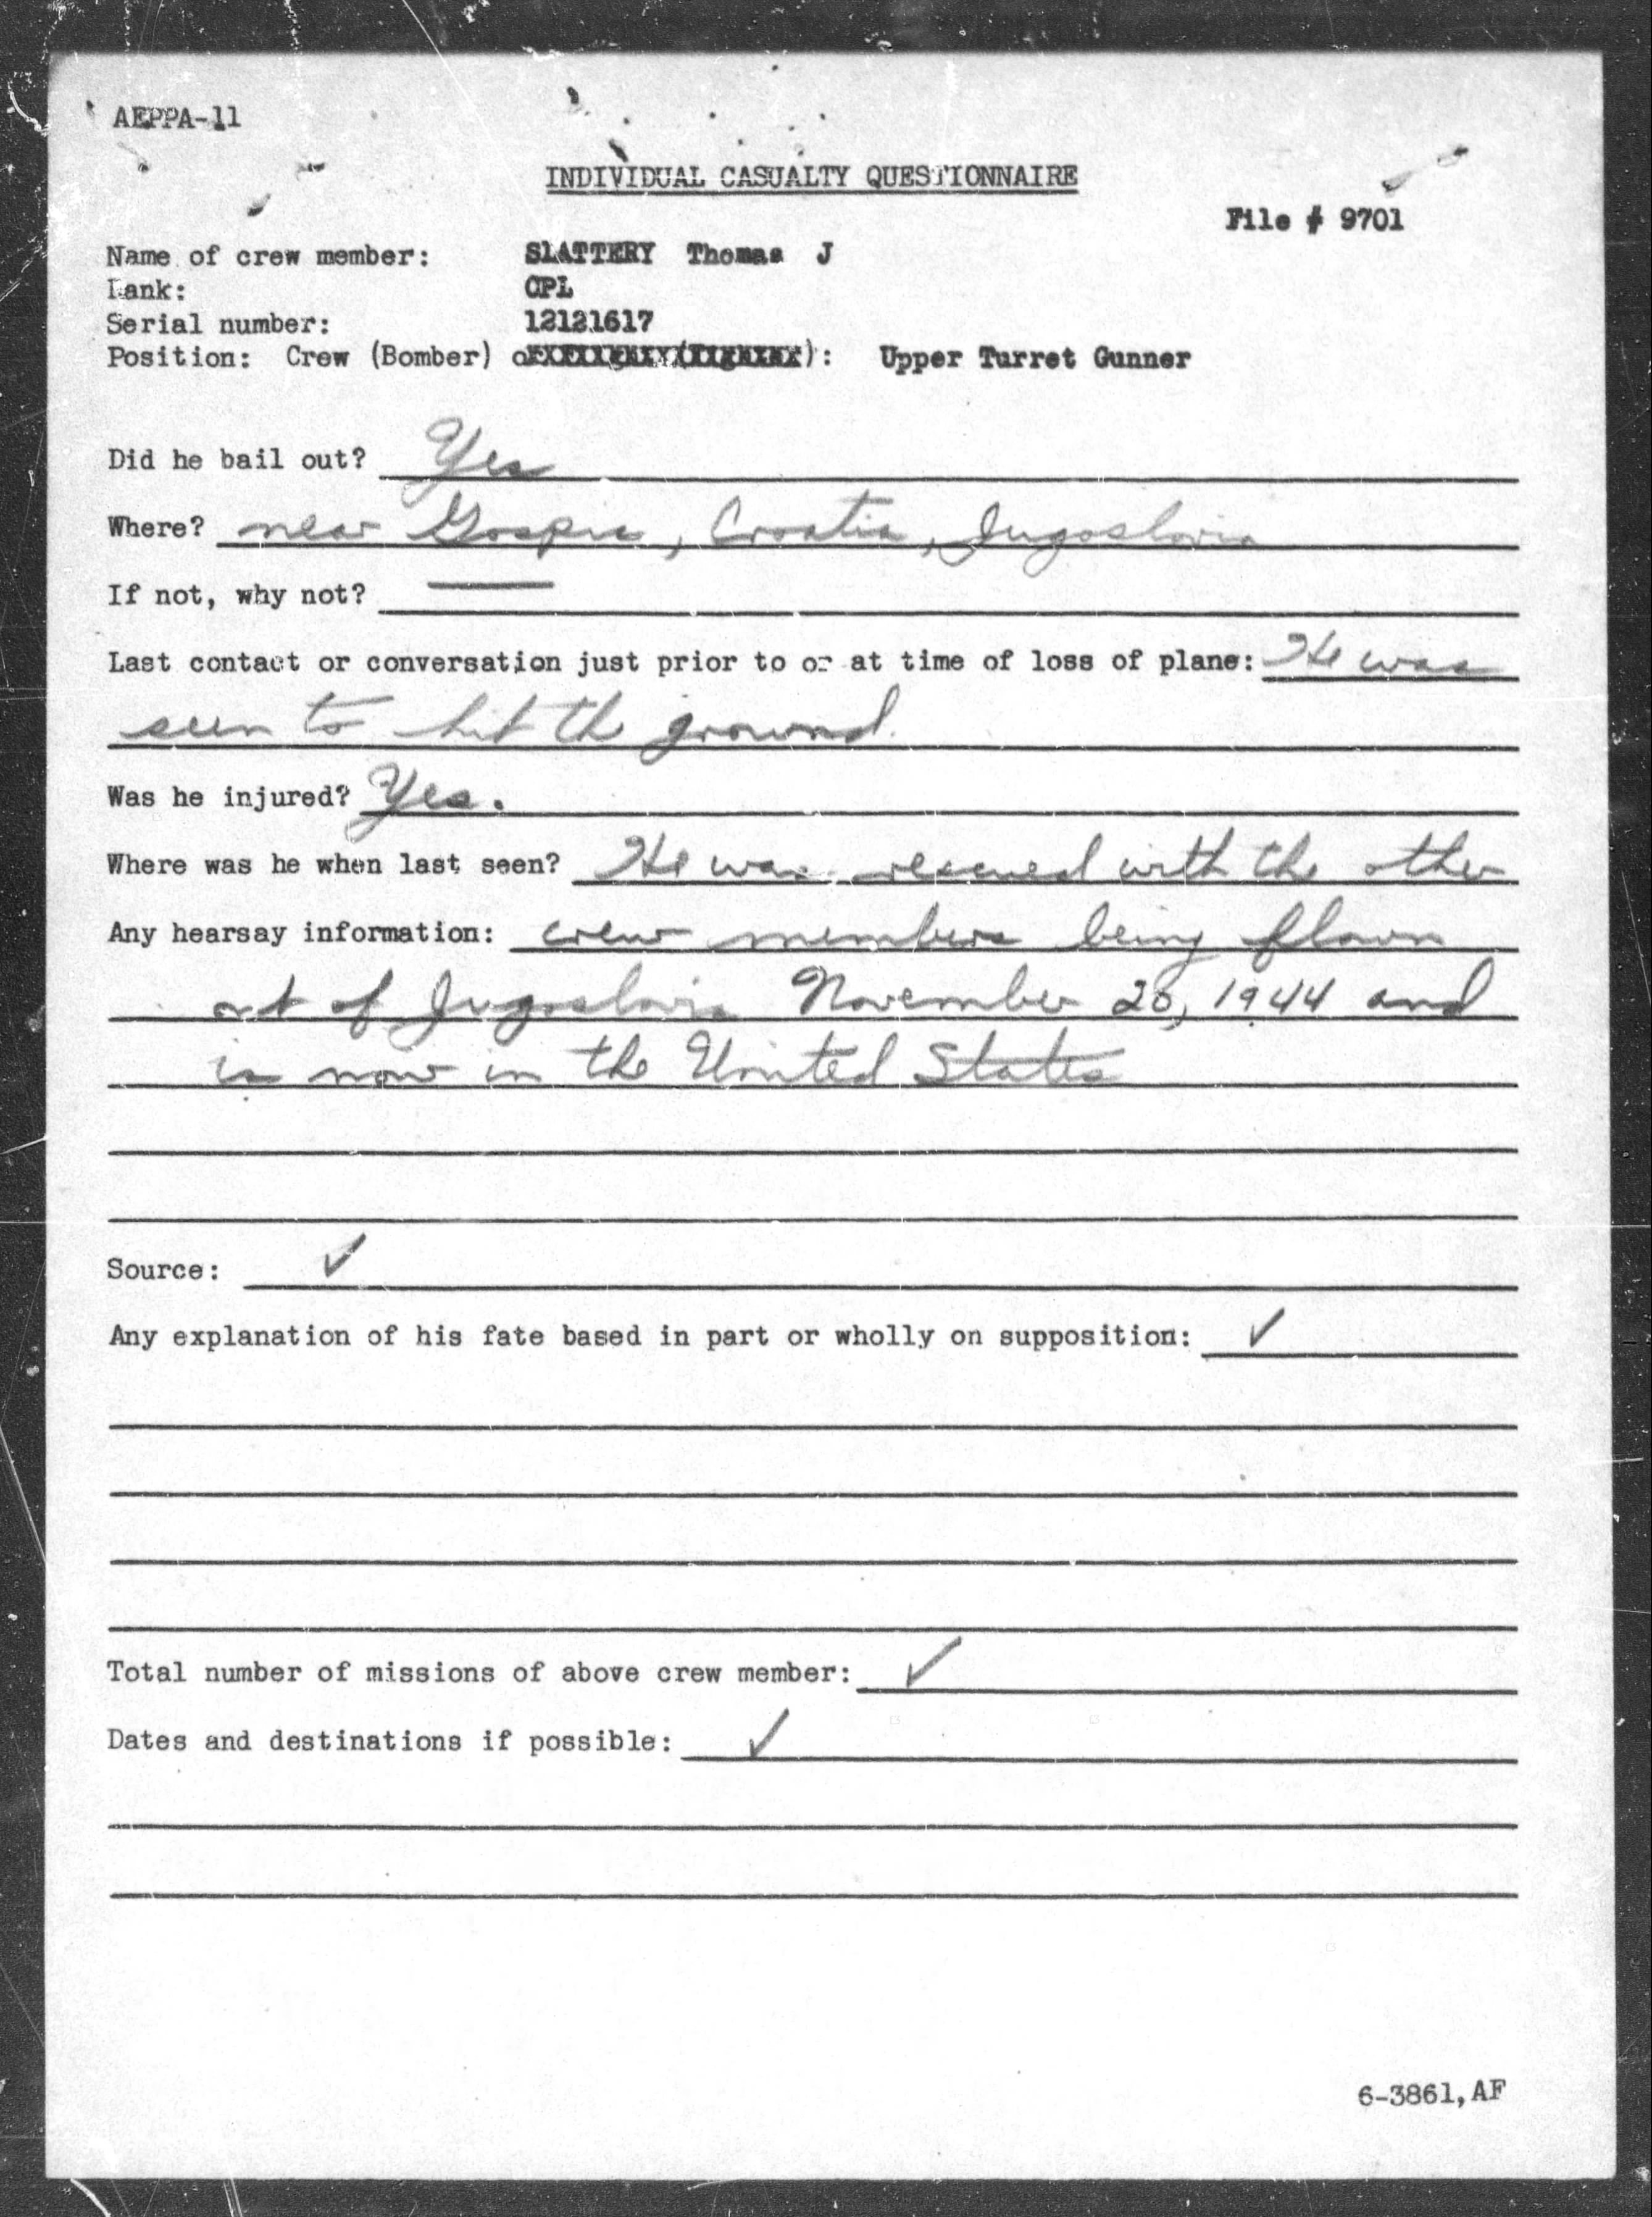 AEPPA-11
INDIVIDUAL CASUALTY QUESTIONNAIRE
File # 9701
Name of crew member: SLATTERY Thomas J
Rank: CPL
Serial number: 12121617
Position: Crew (Bomber) or : Upper Turret Gunner
Did he bail out? Yes
Where? near Gospic, Croatia, Jugoslavia
If not, why not? —
Last contact or conversation just prior to or at time of loss of plane: He was
seen to hit the ground.
Was he injured? Yes.
Where was he when last seen? He was rescued with the other
Any hearsay information: crew members being flown
out of Jugoslavia November 20, 1944 and
is now in the United States
Source: ✓
Any explanation of his fate based in part or wholly on supposition: ✓
Total number of missions of above crew member: ✓
Dates and destinations if possible: ✓
6-3861,AF